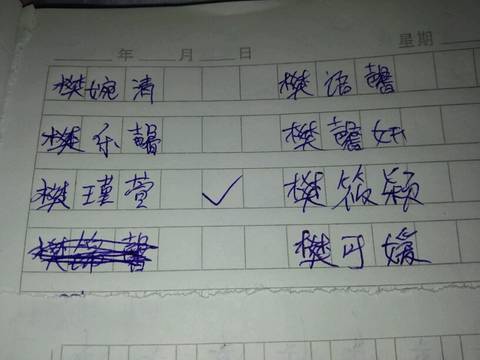 年 月 日 星期
樊婉清 樊语馨
樊乐馨 樊馨妍
樊瑾萱 ✓ 樊筱颖
樊可媛